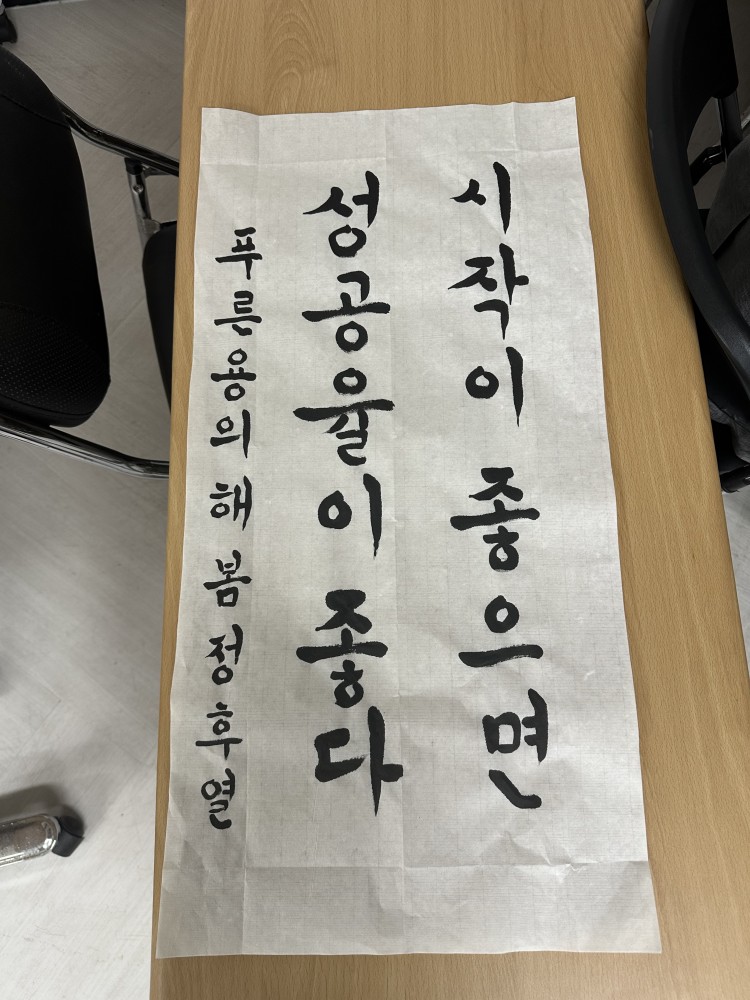 시작이 좋으면
성공율이 좋다
푸른용의 해 봄 정후열